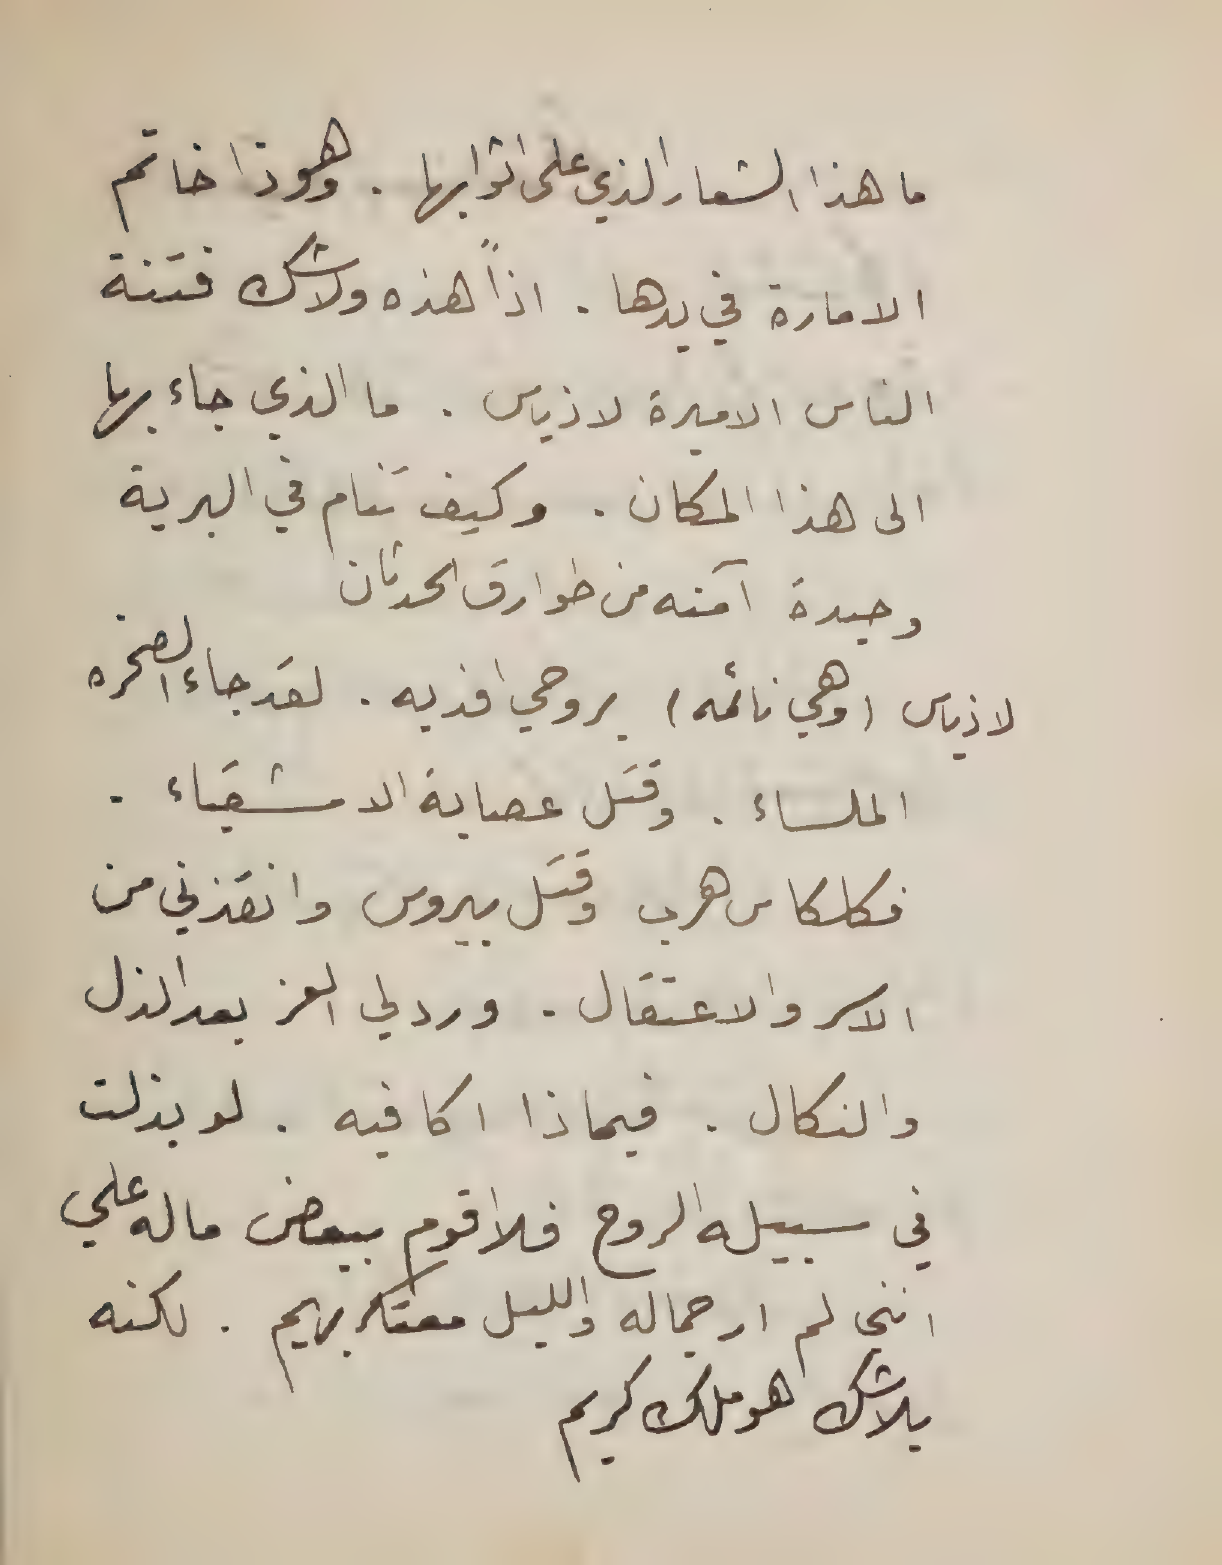 ما هذا الشعار الذي على اثوابها . وهوذا خاتم
الامارة في يدها . اذاً هذه ولاشك فتنة
الناس الاميرة لاذياس . ما الذي جاء بها
الى هذا المكان . وكيف تنام في البرية
وحيدة آمنه من طوارق الحدثان
لاذياس (وهي نائمه) بروحي افديه . لقد جاء الصخره
الملساء . وقتل عصابة الاشقياء .
فكلكاس هرب وقتل بيروس وانقذني من
الاسر والاعتقال . ورد لي العز بعد الذل
والنكال . فبماذا اكافيه . لو بذلت
في سبيله الروح فلا اقوم ببعض ماله علي
انني لم ار جماله والليل معتكر بهيم . لكنه
بلاشك هو ملك كريم